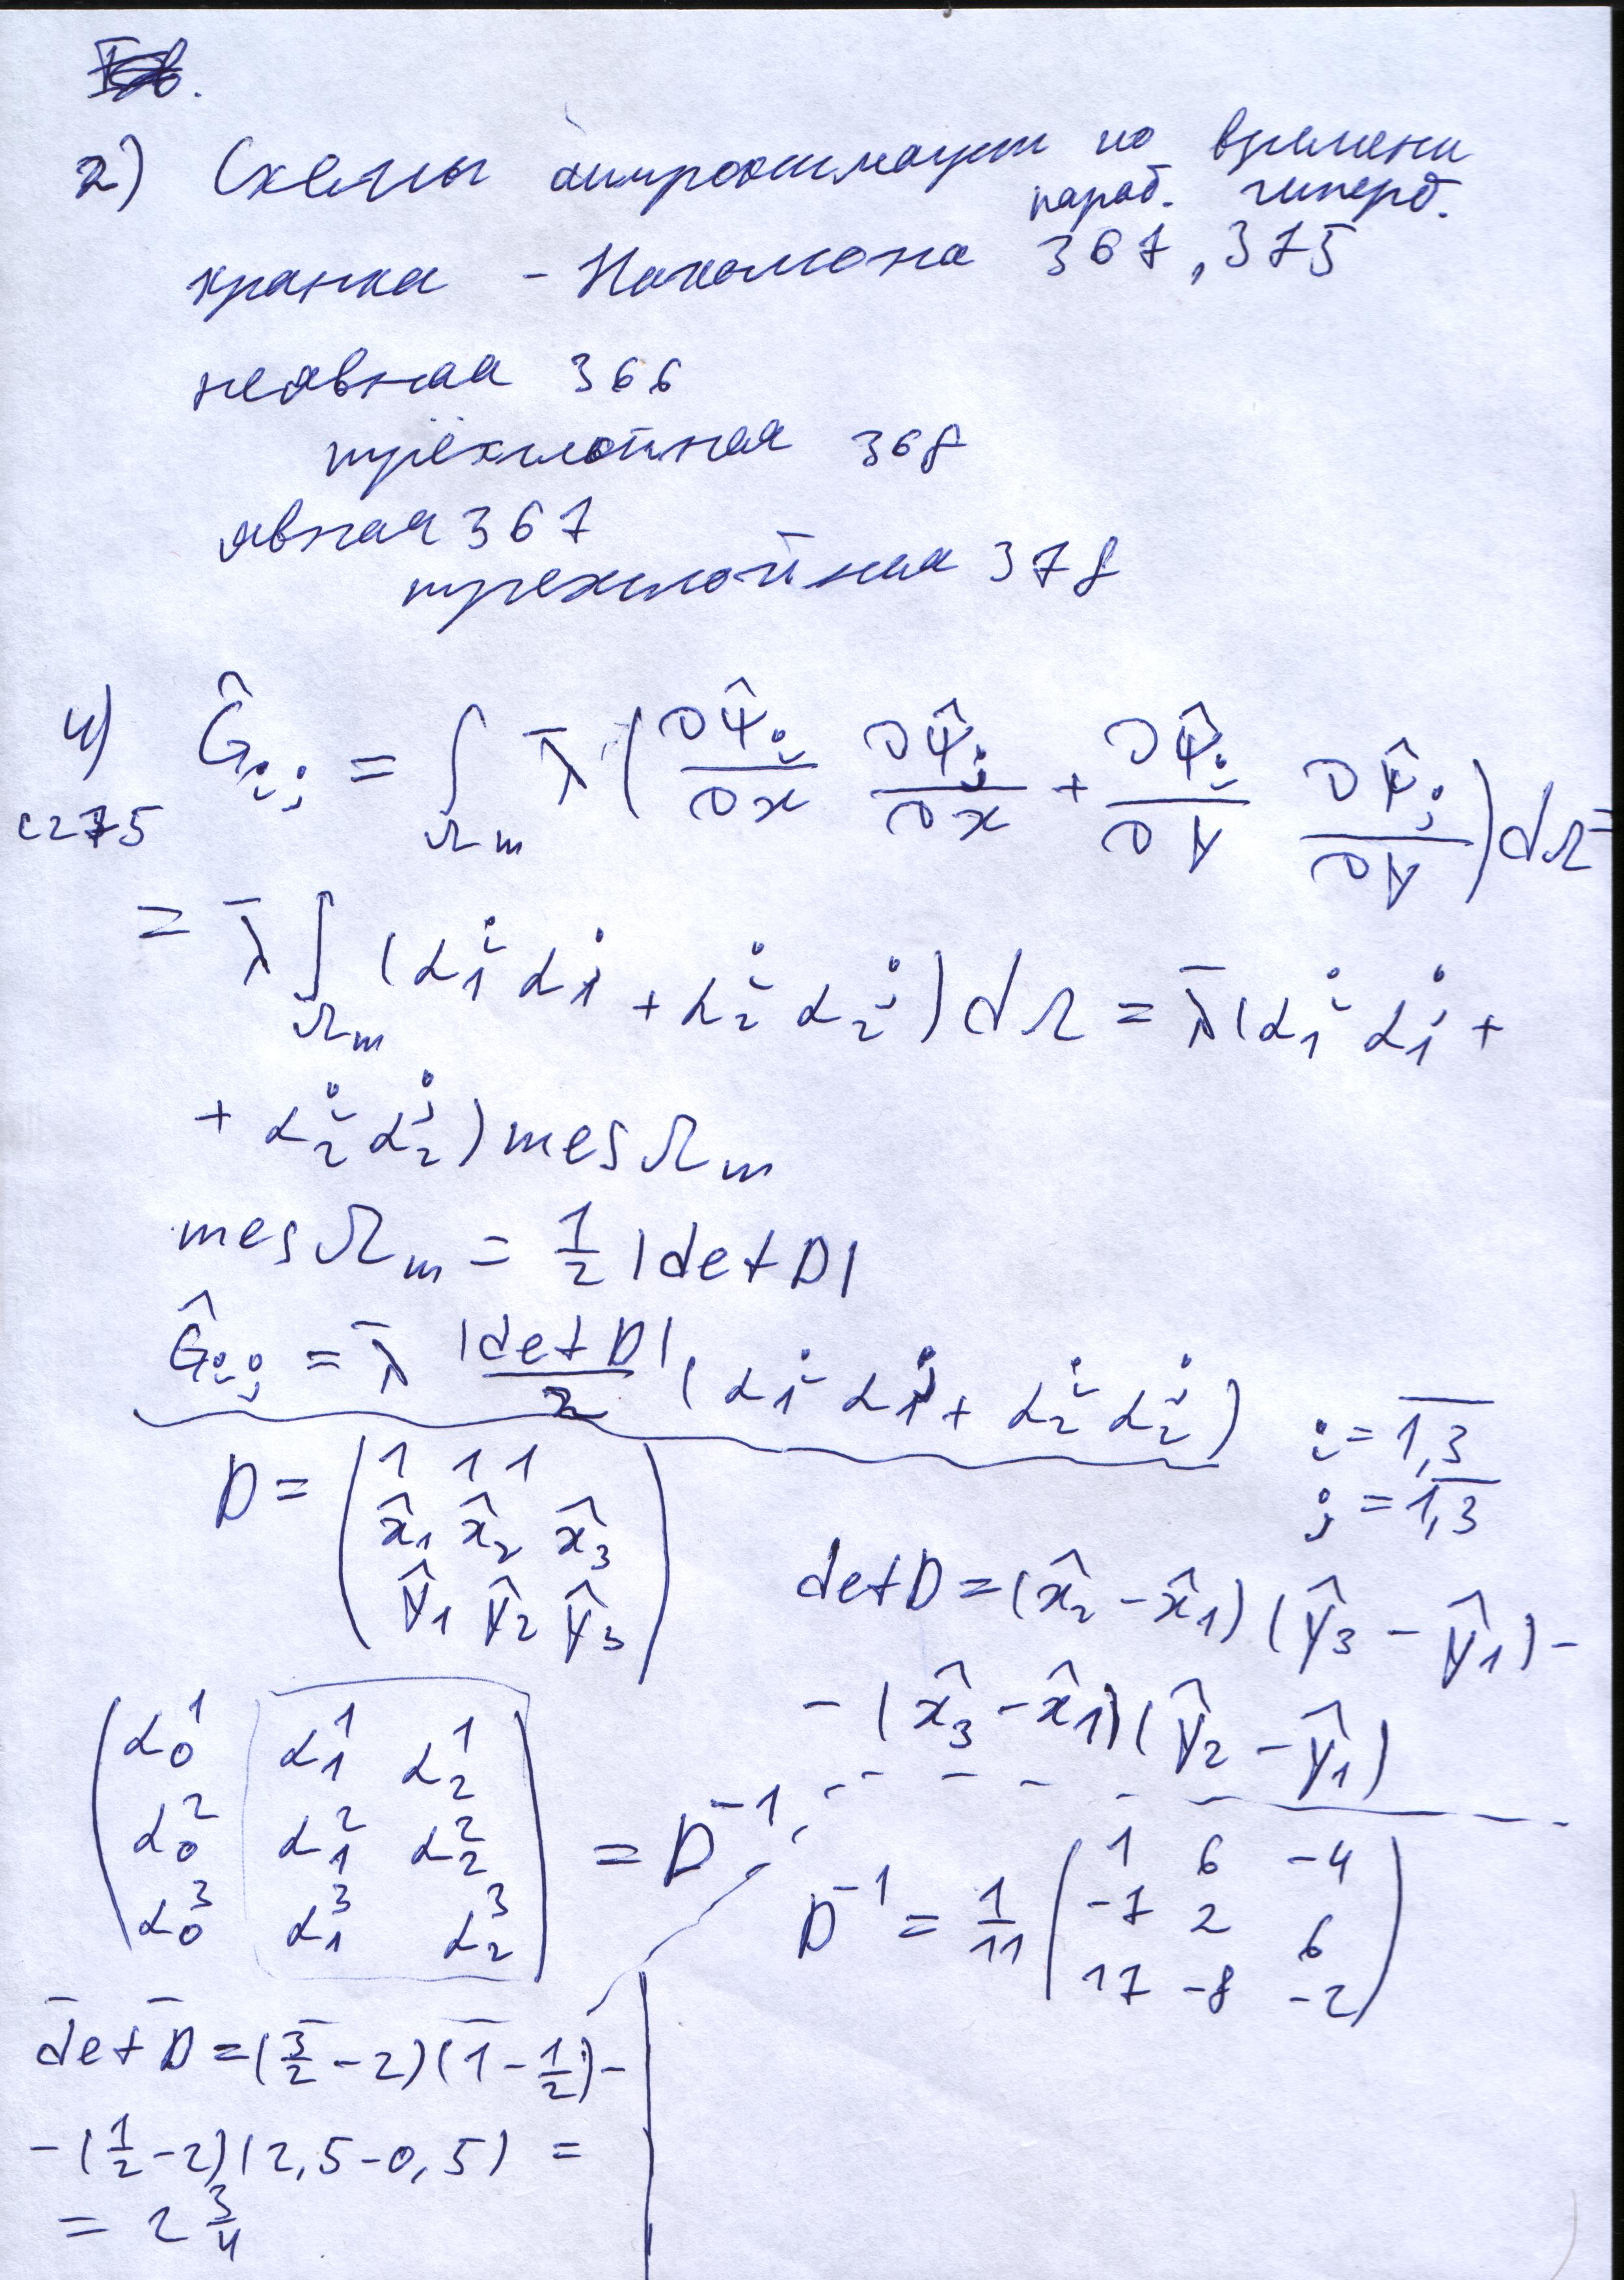 2) Схемы аппроксимации по времени
параб. гиперб.
Кранка - Николсона 367, 375
неявная 366
трёхслойная 368
явная 367
трехслойная 378
4) Ĝij = ∫Ωm λ̄ (∂ψ̂i/∂x ∂ψ̂j/∂x + ∂ψ̂i/∂y ∂ψ̂j/∂y) dΩ =
с 275
= λ̄ ∫Ωm (α₁ⁱ α₁ʲ + α₂ⁱ α₂ʲ) dΩ = λ̄ (α₁ⁱ α₁ʲ +
+ α₂ⁱ α₂ʲ) mes Ωm
mes Ωm = 1/2 |det D|
Ĝij = λ̄ |det D|/2 (α₁ⁱ α₁ʲ + α₂ⁱ α₂ʲ) i = 1,3
j = 1,3
D = (1 1 1
x̂₁ x̂₂ x̂₃
ŷ₁ ŷ₂ ŷ₃)
det D = (x̂₂ - x̂₁) (ŷ₃ - ŷ₁) -
- (x̂₃ - x̂₁) (ŷ₂ - ŷ₁)
(α₀¹ α₁¹ α₂¹
α₀² α₁² α₂²
α₀³ α₁³ α₂³) = D⁻¹
D⁻¹ = 1/11 (1 6 -4
-7 2 6
17 -8 -2)
det D = (3/2 - 2) (1 - 1/2) -
- (1/2 - 2) (2,5 - 0,5) =
= 2 3/4